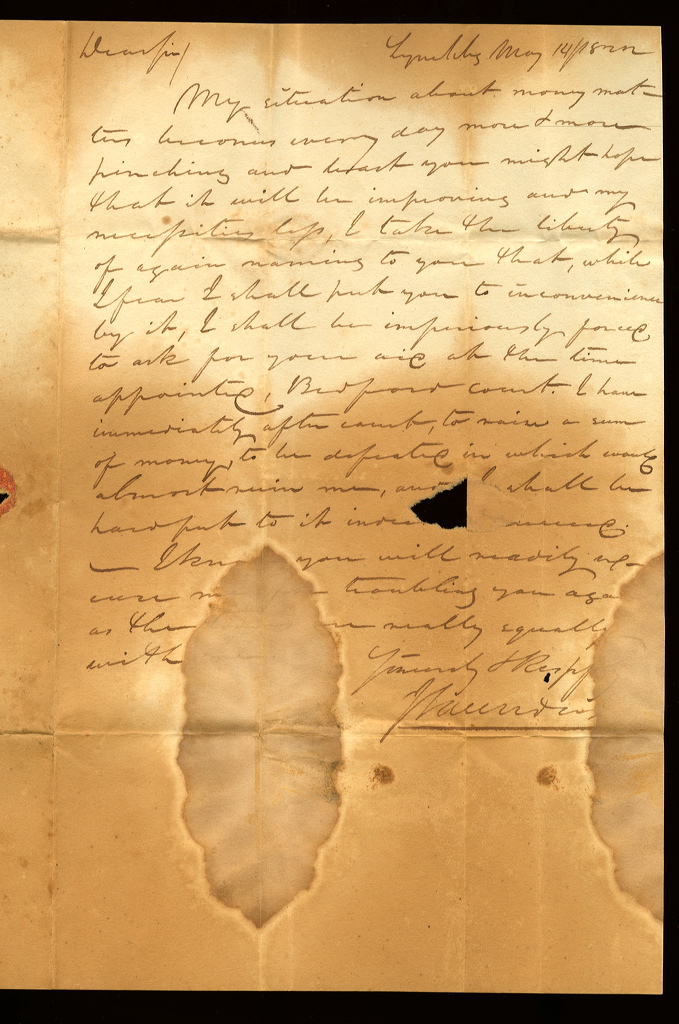 Dear Sir, Lynchbg May 14th 1822
My situation about money mat-
ters becomes every day more & more
pinching and least you might hope
that it will be improving and my
necessities less, I take the liberty
of again naming to you that, while
I fear I shall put you to inconvenience
by it, I shall be imperiously forced
to ask for your aid at the time
appointed, Bedford court. I have
immediately after court, to raise a sum
of money, to be defeated in which would
almost ruin me, and I shall be
hard put to it
— I know you will readily ex-
cuse troubling you again
as the really equally
with
Sincerely & Resp
J Saunders